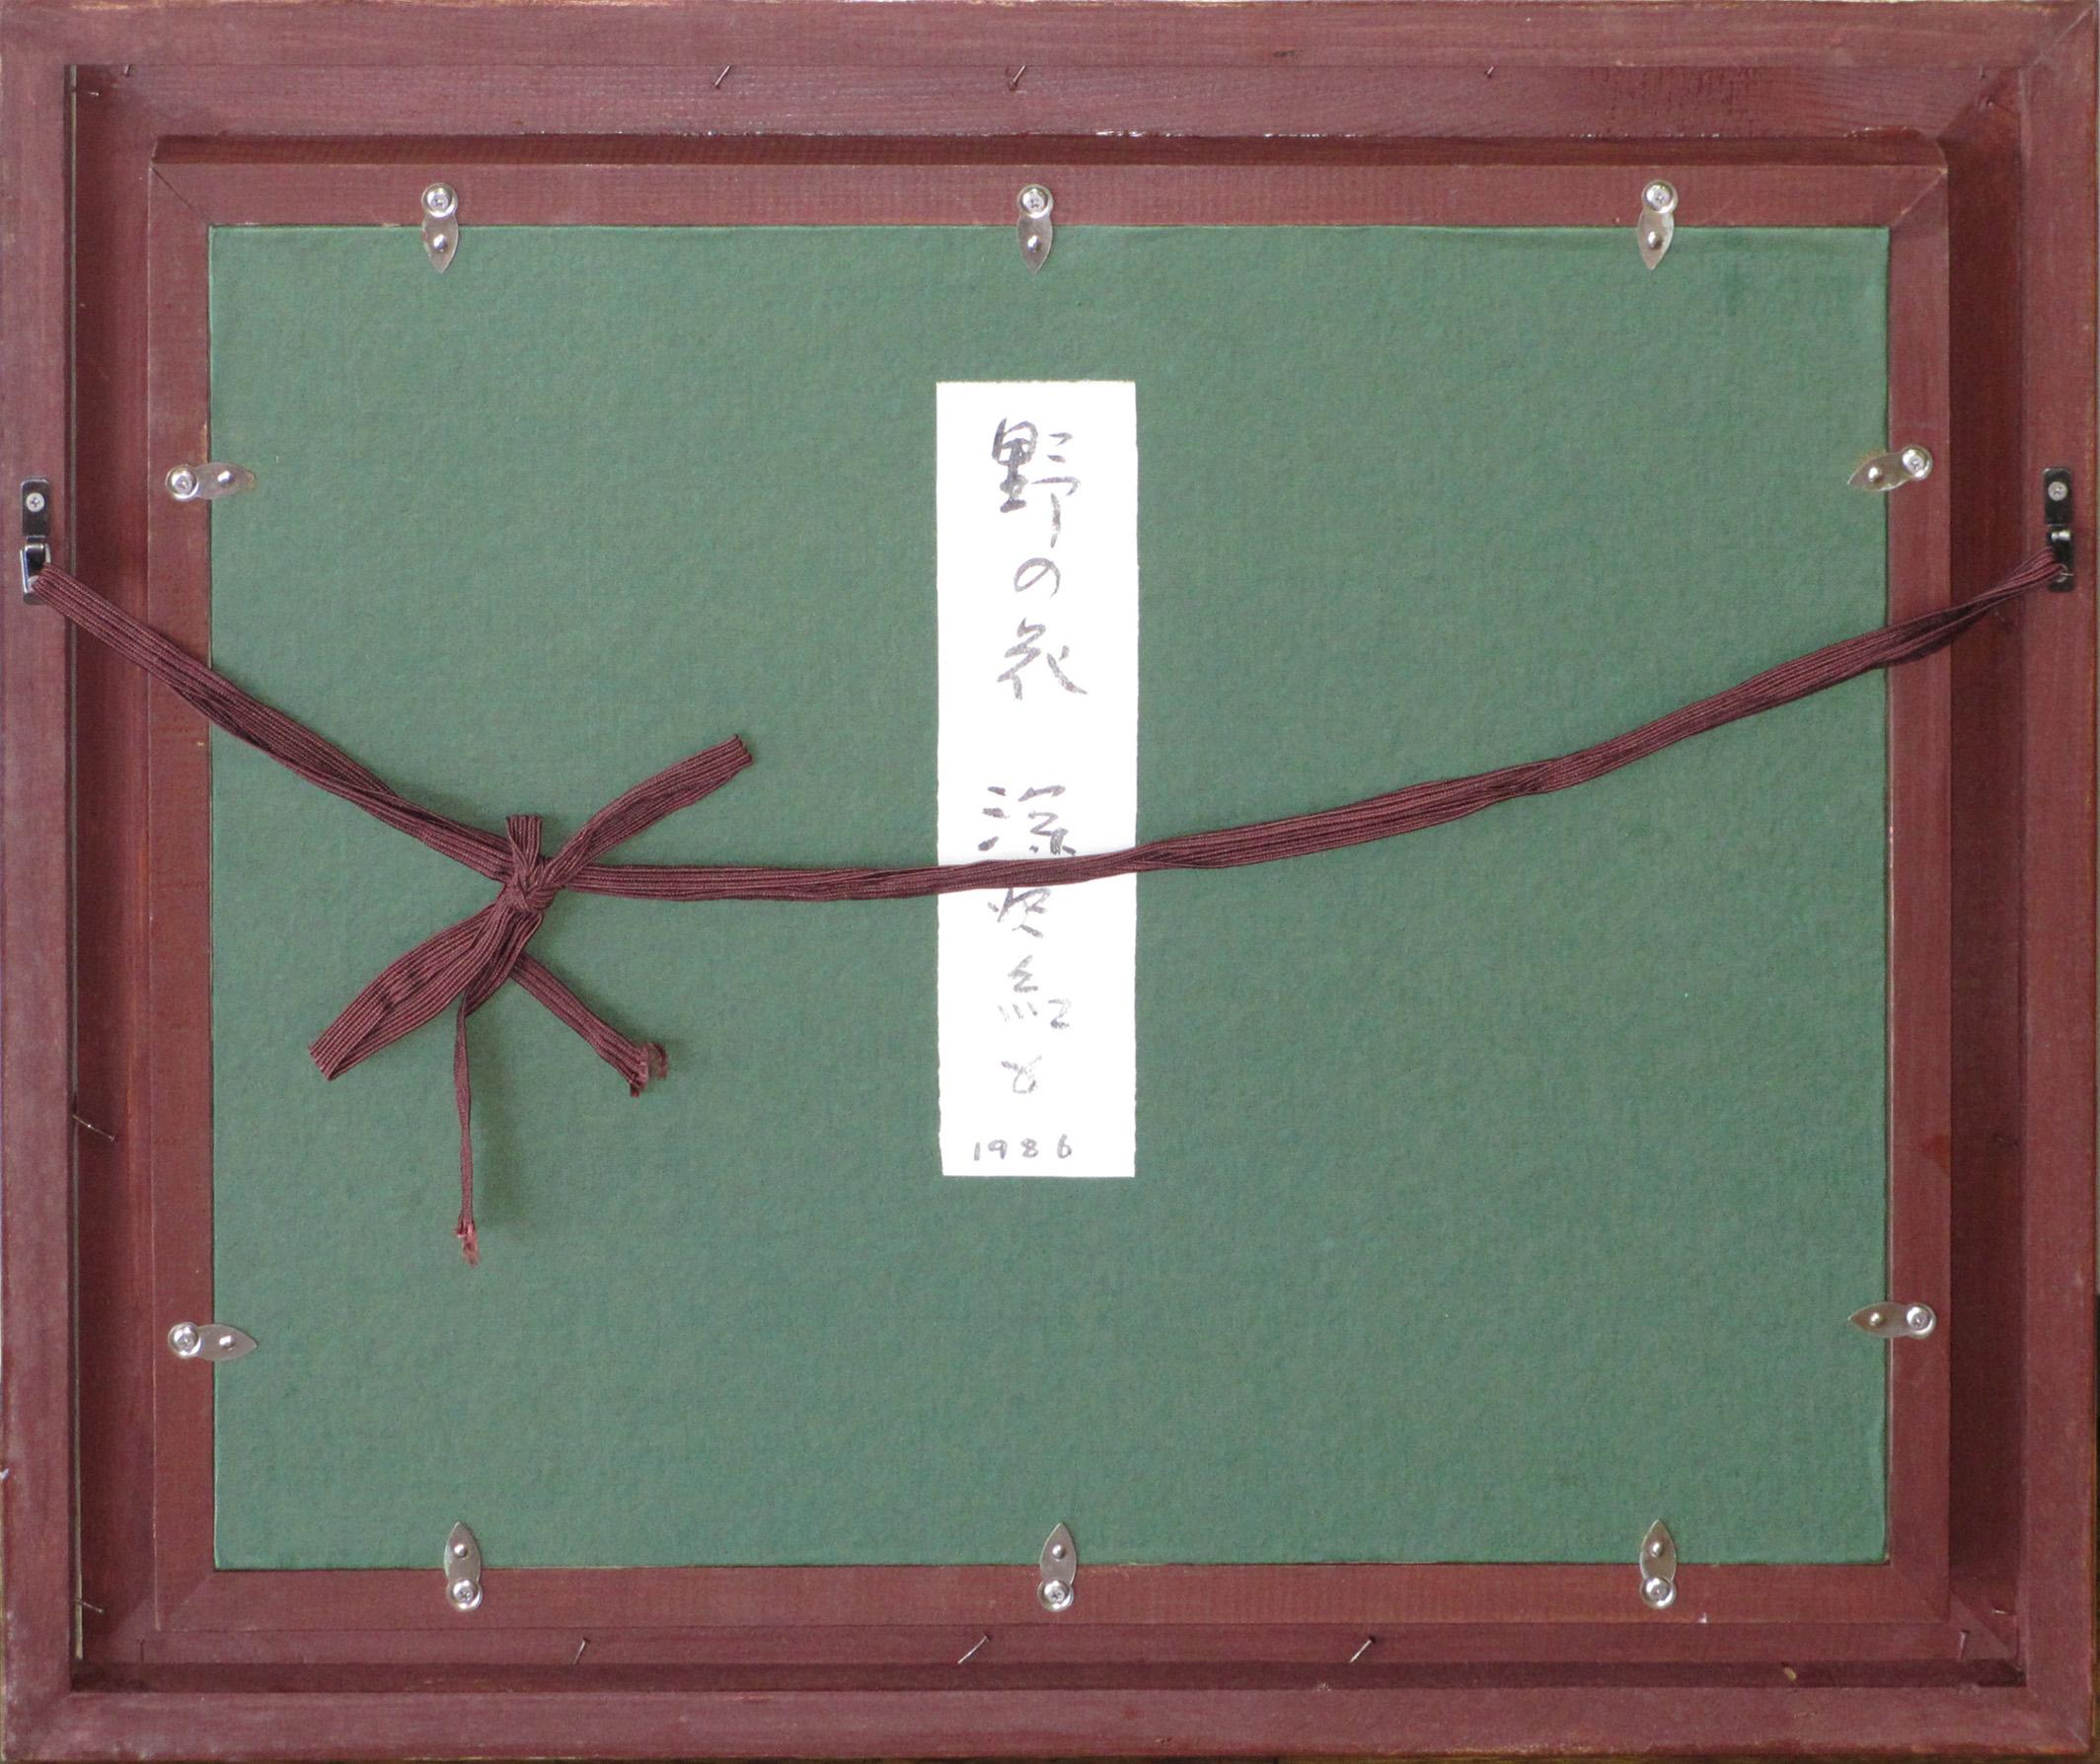 野の花
深沢紅子
1986